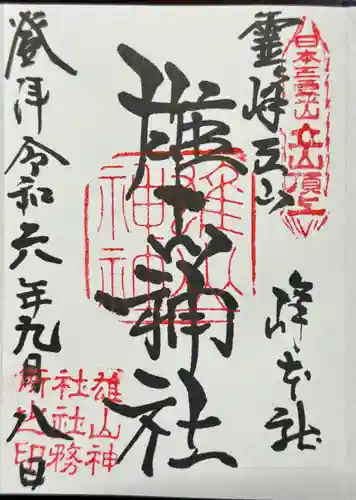 霊峰立山
日本三霊山
立山頂上
峰本社
雄山神社
雄山
神神
社
雄山神
社社務
所之印
登拝令和六年九月八日